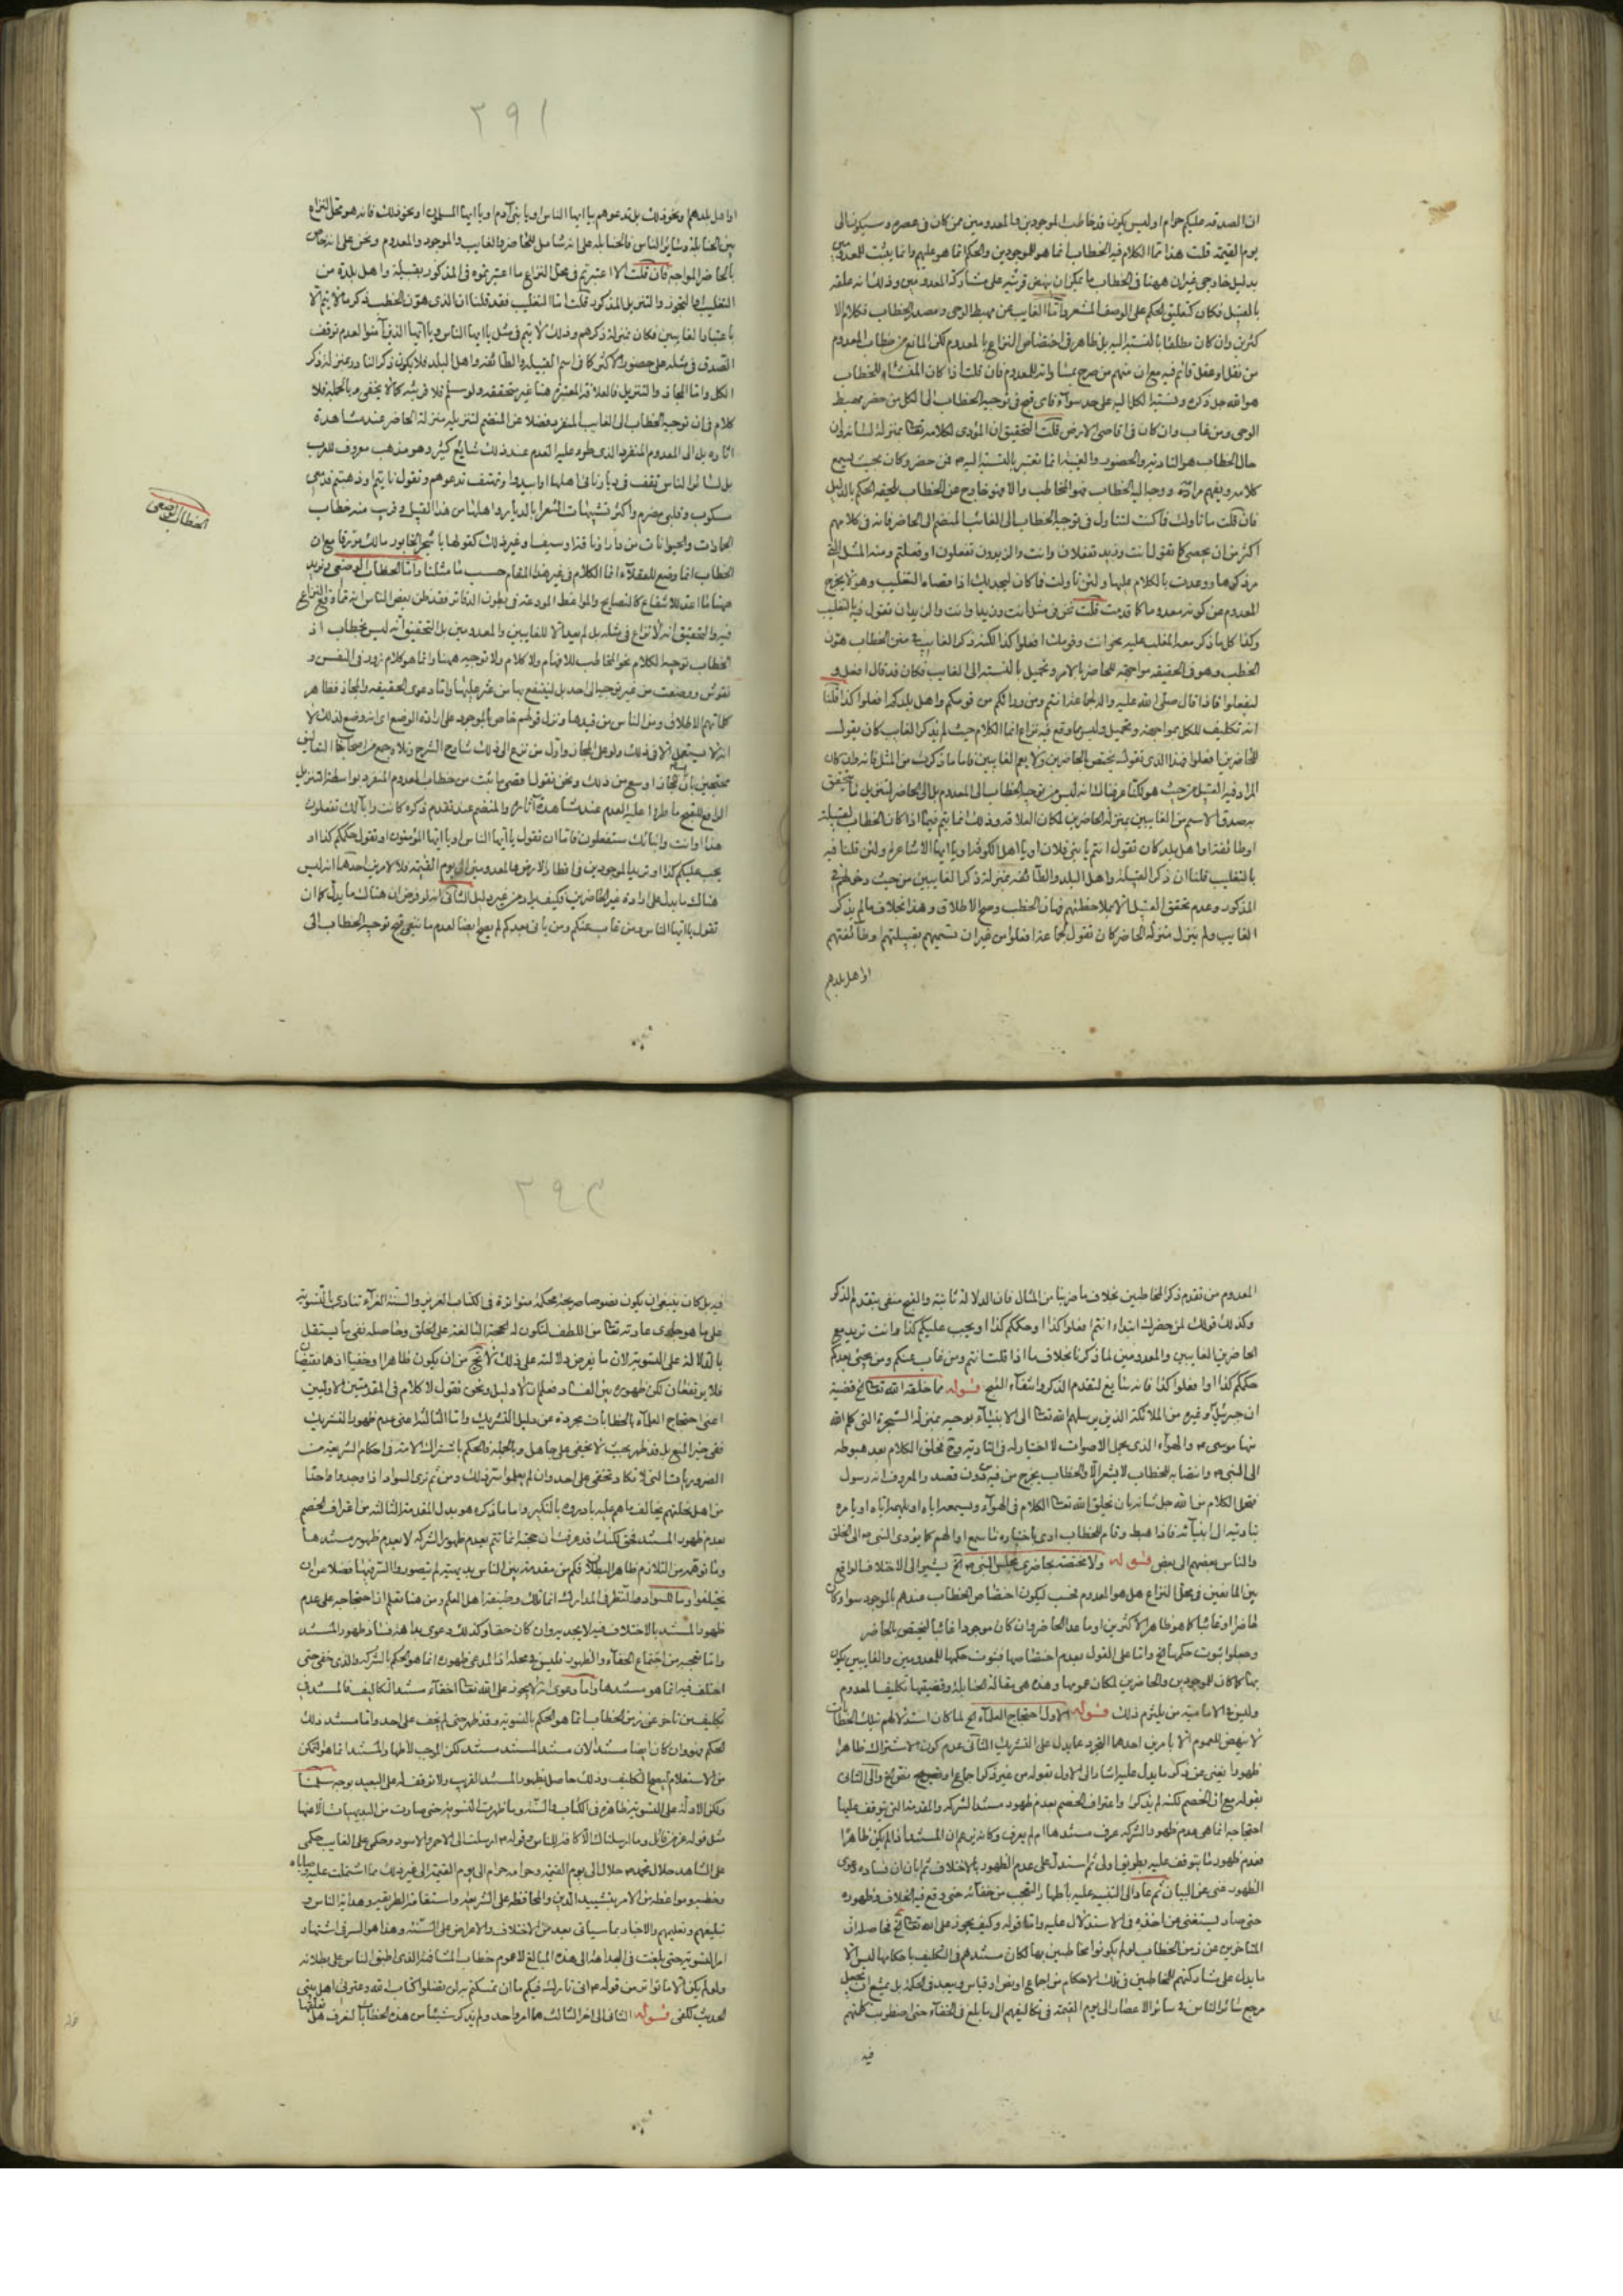 ان الصدقه عليكم حرام اوليس يكون قد خاطب الموجودين والمعدومين ممن كان فى عصره وسيكون الى
يوم القيمة قلت هذا تمام الكلام فيه الخطاب انما هو للموجودين والحكم انما هو عليهم وانما يثبت للمعدومين
بدليل خارجى غير ان ههنا فى الخطاب ما يمكن ان ينهض قرينة على مشاركة المعدومين وذلك انه علقه
بالقبيل فكان كتعليق الحكم على الوصف المشعر واما الغائب عن مهبط الوحى ومصدر الخطاب فكلام الا
كثرين وان كان مطلقا بالنسبة اليه بل ظاهر فى اختصاص النزاع بالمعدوم لكن المانع من خطاب المعدوم
من نقل او عقل قائم فيه مع ان منهم من صرح بمساواته للمعدوم فان قلت اذا كان المنشاء للخطاب
هو الله جل ذكره ونسبة الكل اليه على حد سوآء فاى قبح فى توجيه الخطاب الى الكل من حضر مهبط
الوحى ومن غاب وان كان فى اقاصى الارض قلت التحقيق ان المؤدى لكلامه تعالى بمنزلة لسانه وان
حال الخطاب هو التادية والحضور والغيبة انما تعتبر بالنسبة اليه فمن حضر وكان بحيث يسمع
كلامه ويفهم مراده ووجه اليه الخطاب فهو المخاطب والا فهو خارج عن الخطاب يلحقه الحكم بالدليل
فان قلت ما تاولت فاكنت لتناول فى توجيه الخطاب الى الغائب المنضم الى الحاضر فانه فى كلامهم
اكثر من ان يحصى كما تقول انت وزيد تفعلان وانت والزيدون تفعلون او فعلتم ومنه المثل التى
مر ذكرها ووعدت بالكلام عليها ولئن تاولت فاكان ليجديك اذا قصاه التغليب وهو لا يخرج
المعدوم عن كونه معدوما كما قدمت قلت نحن فى مثل انت وزيد وانت والزيدان نقول فيه التغليب
وكذا كل ما ذكر معه المغلب عليه نحو انت وقومك افعلوا كذا لكنه ذكر الغائب فى متن الخطاب هون
الخطب وهو فى الحقيقه مواجهة للحاضر بالامر وتحميل بالنسبة الى الغائب فكان قد قال افعل و
ليفعلوا فاذا قال صلى الله عليه واله لجماعة انتم ومن ورائكم من قومكم واهل بلدكم افعلوا كذا قلنا
انه تكليف للكل مواجهة وتحميل وليس ما وقع فيه نزاع انما الكلام حيث لم يذكر الغائب كان يقول
للحاضرين افعلوا فهذا الذى نقول يختص بالحاضرين ولا يعم الغائبين فاما ما ذكرت من المثل فانه وان كان
المراد فيه القبيل من حيث هو لكنا عرفناك انه ليس من توجيه الخطاب الى المعدوم بل الى الحاضر لتنزيل ما تحقق
به صدق الاسم من الغائبين بمنزلة الحاضرين لمكان العلاقة وذلك انما يتم فيما اذا كان الخطاب لقبيلة
او طائفة او اهل بلد كان تقول انتم يا بنى فلان او يا اهل الكوفة او يا ايها الاشاعرة ولئن قلنا فيه
بالتغليب قلنا ان ذكر القبيلة واهل البلد والطائفة بمنزلة ذكر الغائبين من حيث دخولهم فى
المذكور وعدم تحقق القبيل الا بملاحظتهم فهان الخطب وصح الاطلاق وهذا بخلاف ما لم يذكر
الغائب ولم ينزل منزلة الحاضر كان تقول لجماعة افعلوا من غير ان تسميهم بقبيلتهم وطائفتهم
او اهل بلدهم
٣٩١
او اهل بلدهم ونحو ذلك بل تدعوهم بيا ايها الناس او يا بنى آدم او يا ايها المسلمون او نحو ذلك فانه هو محل النزاع
بين الحنابلة وسائر الناس فالحنابلة على انه شامل للحاضر والغائب والموجود والمعدوم ونحن على انه خاص
بالحاضر المواجه فان قلت الا اعتبرتم فى محل النزاع ما اعتبرتموه فى المذكور بقبيلة واهل بلدة من
التغليب او التجوز والتنزيل المذكور قلت اما التغليب فقد قلنا ان الذى هون الخطب ذكر ما لا يتم الا
باعتبار الغائبين فكان بمنزلة ذكرهم وذلك لا يتم فى مثل يا ايها الناس ويا ايها الذين آمنوا لعدم توقف
الصدق فى مثله على حضور الاكثر كما فى اسم القبيلة والطائفة واهل البلد فلا يكون ذكر النادر بمنزلة ذكر
الكل واما المجاز والتنزيل فالعلاقة المعتبرة هنا غير متحققه ولو سلم فلا قرينة كما لا يخفى وبالجملة فلا
كلام فى ان توجيه الخطاب الى الغايب المنفرد فضلا عن المنضم لتنزيله منزلة الحاضر عند مشاهدة
اثاره بل الى المعدوم المنفرد الذى طرء عليه العدم عند ذلك شايع كثير وهو مذهب معروف للعرب
بل لسائر الناس تقف فى ديار نائى اهلها او ابيدوا وتهتف تدعوهم وتقول نايتم وذهبتم فدمعى
سكوب وقلبى مضرم واكثر تشبيهات الشعرا بالديار واهلها من هذا القبيل وقريب منه خطاب
الجمادات والحيوانات من دار وناقة وسيف وغير ذلك كقولها يا شجر الخابور مالك مورقا مع ان
الخطاب انما وضع للعقلاء انما الكلام فى غير هذا المقام حسب ما مثلنا واما الخطاب الوضعى ونريد
ههنا ما اعد للانتفاع كالنصايح والمواعظ المودعة فى بطون الدفاتر فقد ظن بعض الناس انه مما وقع النزاع
فيه والتحقيق انه لا نزاع فى مثله بل لم يعد الا للغايبين والمعدومين بل التحقيق انه ليس بخطاب اذ
الخطاب توجيه الكلام نحو المخاطب للافهام ولا كلام ولا توجيه ههنا وانما هو كلام زور فى النفس و
نقوش ووضعت من غير توجيه الى احد بل لينتفع بها من عثر عليها واما دعوى الحقيقه والمجاز فظاهر
كلماتهم الاطلاق ومن الناس من قيدها ونزل قولهم خاص بالموجود على ارادة الوضع اى انه وضع لذلك لا
انه لا يستعمل الا فى ذلك ولو على المجاز واول من نزع الى ذلك شارح الشرح وتلاه جمع من اصحابنا المتاخرين
محتجين بان باب المجاز اوسع من ذلك ونحن نقول اقصى ما يثبت من خطاب المعدوم المنفرد بواسطة التنزيل
الرافع للقبح ما طرء عليه العدم عند مشاهدة آثاره والمنضم عند تقدم ذكره كانت وآبآئك تفعلون
هذا او انت وابنائك ستفعلون فاما ان تقول يا ايها الناس او يا ايها المؤمنون او تقول حكمكم كذا او
يجب عليكم كذا وتريد الموجودين فى اقطار الارض والمعدومين الى يوم القيمة فلا لامرين احدهما انه ليس
هناك ما يدل على ارادة غير الحاضرين فكيف يراد من غير دليل الثانى انه لو فرض ان هناك ما يدل كما ان
تقول يا ايها الناس ومن غاب عنكم ومن ياتى بعدكم لم يصح ايضا لعدم ما ينفى قبح توجيه الخطاب الى
الخطاب الوضعى
المعدوم من تقدم ذكر المخاطبين بخلاف ما ضربنا من المثال فان الدلالة ثابتة والقبح منفى بتقدم الذكر
وكذلك قولك لمن حضرك ابتداء انتم افعلوا كذا او حكمكم كذا او يجب عليكم كذا وانت تريد مع
الحاضرين الغايبين والمعدومين لما ذكرنا بخلاف ما اذا قلت انتم ومن غاب عنكم ومن يجئ بعدكم
حكمكم كذا او افعلوا كذا فانه سايغ لتقدم الذكر وانتفآء القبح قوله مما خلقه الله تعالى الخ قضية
ان جبرئيل وغيره من الملائكة الذين يرسلهم الله تعالى الى الانبيآء بوحيه بمنزلة الشجرة التى كلم الله
منها موسى ع والهوآء الذى يحمل الاصوات لا اختيار له فى التادية وح فخلق الكلام بعد هبوطه
الى النبى ص وانتصابه للخطاب لا يشعر الا والخطاب يخرج من فيه من دون قصد والمعروف انه رسول
يتحمل الكلام من الله جل شانه بان يخلق الله تعالى الكلام فى الهوآء ويسمعه اياه او يلهمه اياه او يامره
بتاديته الى انبيآئه فاذا هبط وقام للخطاب ادى باختياره ما سمع او الهم كما يؤدى النبى ص الى الخلق
والناس بعضهم الى بعض قوله ولا يختص بحاضرى مجلس النبى ص الخ يشير الى الاختلاف الواقع
بين المانعين فى محل النزاع هل هو المعدوم فحسب ليكون اختصاص الخطاب عندهم بالموجود سوا كان
حاضرا او غائبا كما هو ظاهر الاكثرين او ما عدا الحاضر وان كان موجودا غائبا ليختص بالحاضر
وجعلوا ثبوت حكمها الخ واما على القول بعدم اختصاصها فثبوت حكمها للمعدومين والغايبين يكون
بها كما كان للموجودين والحاضرين لمكان عمومها وهذه هى مقالة الحنابلة وقضيتها تكليف المعدوم
وليس فى الامامية من يلتزم ذلك قوله الاول احتجاج العلمآء الخ لما كان استدلالهم بتلك الخطابات
لا ينهض للعموم الا بامرين احدهما التجرد عما يدل على التشريك الثانى عدم كون الاشتراك ظاهرا
ظهورا يغنى عن ذكر ما يدل عليه اشار الى الاول بقوله من غير ذكر اجماع او نص الخ والى الثانى
بقوله مع ان الخصم لكنه لم يذكر واعتراف الخصم بعدم ظهور مستند الشركة والمقدمة التى يتوقف عليها
احتجاجه انما هى عدم ظهور الشركة عرف مستندها ام لم يعرف وكانه زعم ان المستند اذا لم يكن ظاهرا
فعدم ظهور ما يتوقف عليه بطريق اولى ثم استدل على عدم الظهور بالاختلاف ثم ابان ان فساد دعوى
الظهور غنى عن البيان ثم عاد الى التنبيه عليه باظهار التعجب من خفائه حتى وقع فيه الخلاف وظهوره
حتى صار يستغنى عن اخذه فى الاستدلال عليه واما قوله وكيف يجوز على الله تعالى الخ فحاصله ان
المتاخرين عن زمن الخطاب لو لم يكونوا مخاطبين بها لكان مستندهم فى التكليف باحكامها ليس الا
ما يدل على مشاركتهم للمخاطبين فى تلك الاحكام من اجماع او نص او قياس ويبعد فى الحكمة بل يمتنع ان يجعل
مرجع سائر الناس فى سائر الاعصار الى يوم القيمة فى تكاليفهم الى ما بلغ فى الخفآء حتى اضطربت كلمتهم
فيه
٣٩٢
فيه بل كان ينبغى ان يكون نصوصا صريحة محكمة متواترة فى الكتاب العزيز والسنة الغرآء تنادى بالتسوية
على ما هو جارى عادته تعالى من اللطف لتكون له الحجة البالغة على الخلق وحاصله نفى ما يستقل
بالدلالة على التسوية لان ما يفرض دلالته على ذلك لا يخ من ان يكون ظاهرا او خفيا اذ هما نقيضان
فلا يرتفعان لكن ظهوره بين الفساد فعلم ان لا دليل ونحن نقول لا كلام فى المقدمتين الاوليين
اعنى احتجاج العلمآء بالخطابات مجردة عن دليل التشريك واما الثالثة اعنى عدم ظهور التشريك
ففى حيز المنع بل قد ظهر بحيث لا يخفى على جاهل وبالجملة فالحكم باشتراك الامة فى احكام الشريعة من
الضروريات التى لا تكاد تخفى على احد وان لم يعلموا مستند ذلك ومن ثم ترى السواد اذا وجدوا واحدا
من اهل نحلتهم يخالف ما هم عليه بادروه بالنكير واما ما ذكره هو بدل المقدمة الثالثة من اعتراف الخصم
بعدم ظهور المستند فحق لكنك قد عرفت ان حجته انما تتم بعدم ظهور الشركة لا بعدم ظهور مستندها
وما توهمه من التلازم ظاهر البطلان فكم من مقدمة بين الناس بديهية لم يتصوروا الشرفيها فضلا عن ان
يختلفوا وما للسواد والنظر فى المدارك انما تلك وظيفة اهل العلم ومن هنا تعلم ان احتجاجه على عدم
ظهور المستند بالاختلاف فيه لا يجديه وان كان حقا وكذلك دعوى بداهة فساد ظهور المستند
واما تعجبه من اجتماع الخفآء والظهور فليس فى محله اذ المدعى ظهوره انما هو الحكم بالشركة والذى خفى حتى
اختلف فيه انما هو مستندها واما دعوى انه لا يجوز على الله تعالى اخفآء مستند التكاليف فالمستند فى
تكليف من تاخر عن زمن الخطاب انما هو الحكم بالتسوية وقد ظهر حتى لم يخف على احد واما مستند ذلك
الحكم فهو وان كان ايضا مستندا لان مستند المستند مستند لكن الموجب لاظهار المستند انما هو التمكن
من الاستعلام ليصح التكليف وذلك حاصل بظهور المستند القريب ولا توقف له على البعيد بوجه سلمنا
ولكن الادلة على التسوية ظاهرة فى الكتاب والسنة وما ظهرت التسوية حتى صارت من البديهيات الا عنها
مثل قوله عز من قائل وما ارسلناك الا كافة للناس وقوله ص ارسلت الى الاحمر والاسود وحكمى على الغايب حكمى
على الشاهد حلال محمد ص حلال الى يوم القيمة وحرامه حرام الى يوم القيمة الى غير ذلك مما اشتملت عليه وصاياه
وخطبه ومواعظه من الامر بتشييد الدين والمحافظة على الشريعة واستقامة الطريقة وهداية الناس و
تبليغهم وتعليمهم والاخبار بما سياتى بعده من الاختلاف والاعراض على السنة وهذا هو السر فى اشتهار
امر التسوية حتى بلغت فى البداهة الى هذه المبالغ لا عموم خطاب المشافهة الذى اطبق الناس على بطلانه
ولو لم يكن الا ما تواتر من قوله ص انى تارك فيكم ما ان تمسكتم به لن تضلوا كتاب الله وعترتى اهل بيتى
الحديث لكفى قوله الثانى الى اخر الثالث هما امر واحد ولم يذكر شيئا من هذه الخطابات لنعرف هل تعلقها